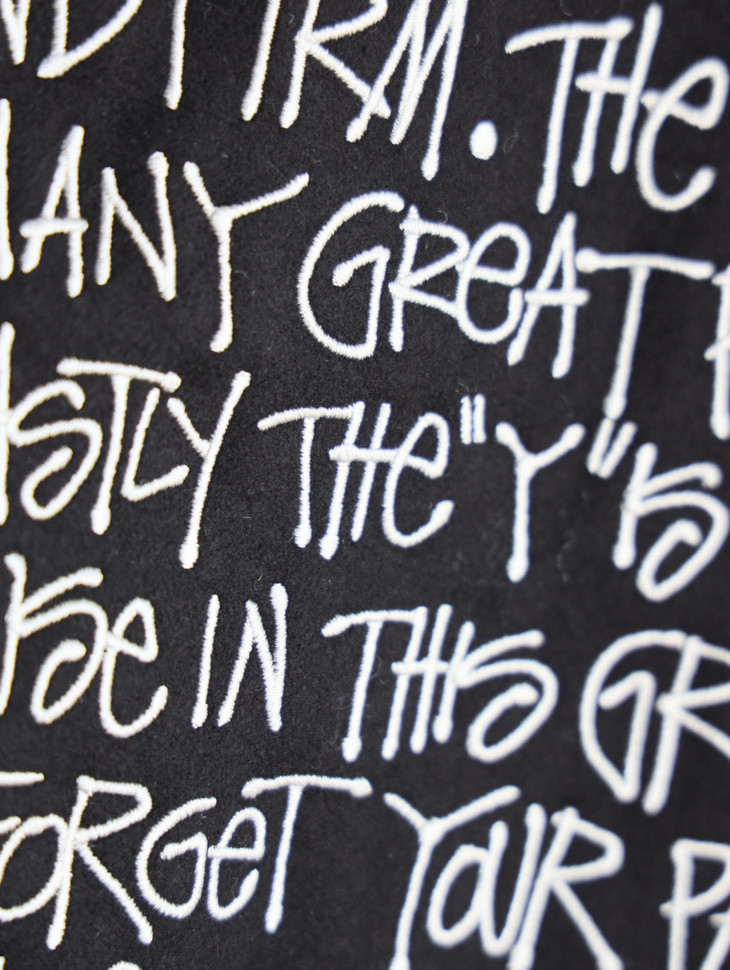 ND FIRM. THe
MANY GReAT
STLY THe "Y" IS
ISe IN THIS GR
FORGeT YOUR PA